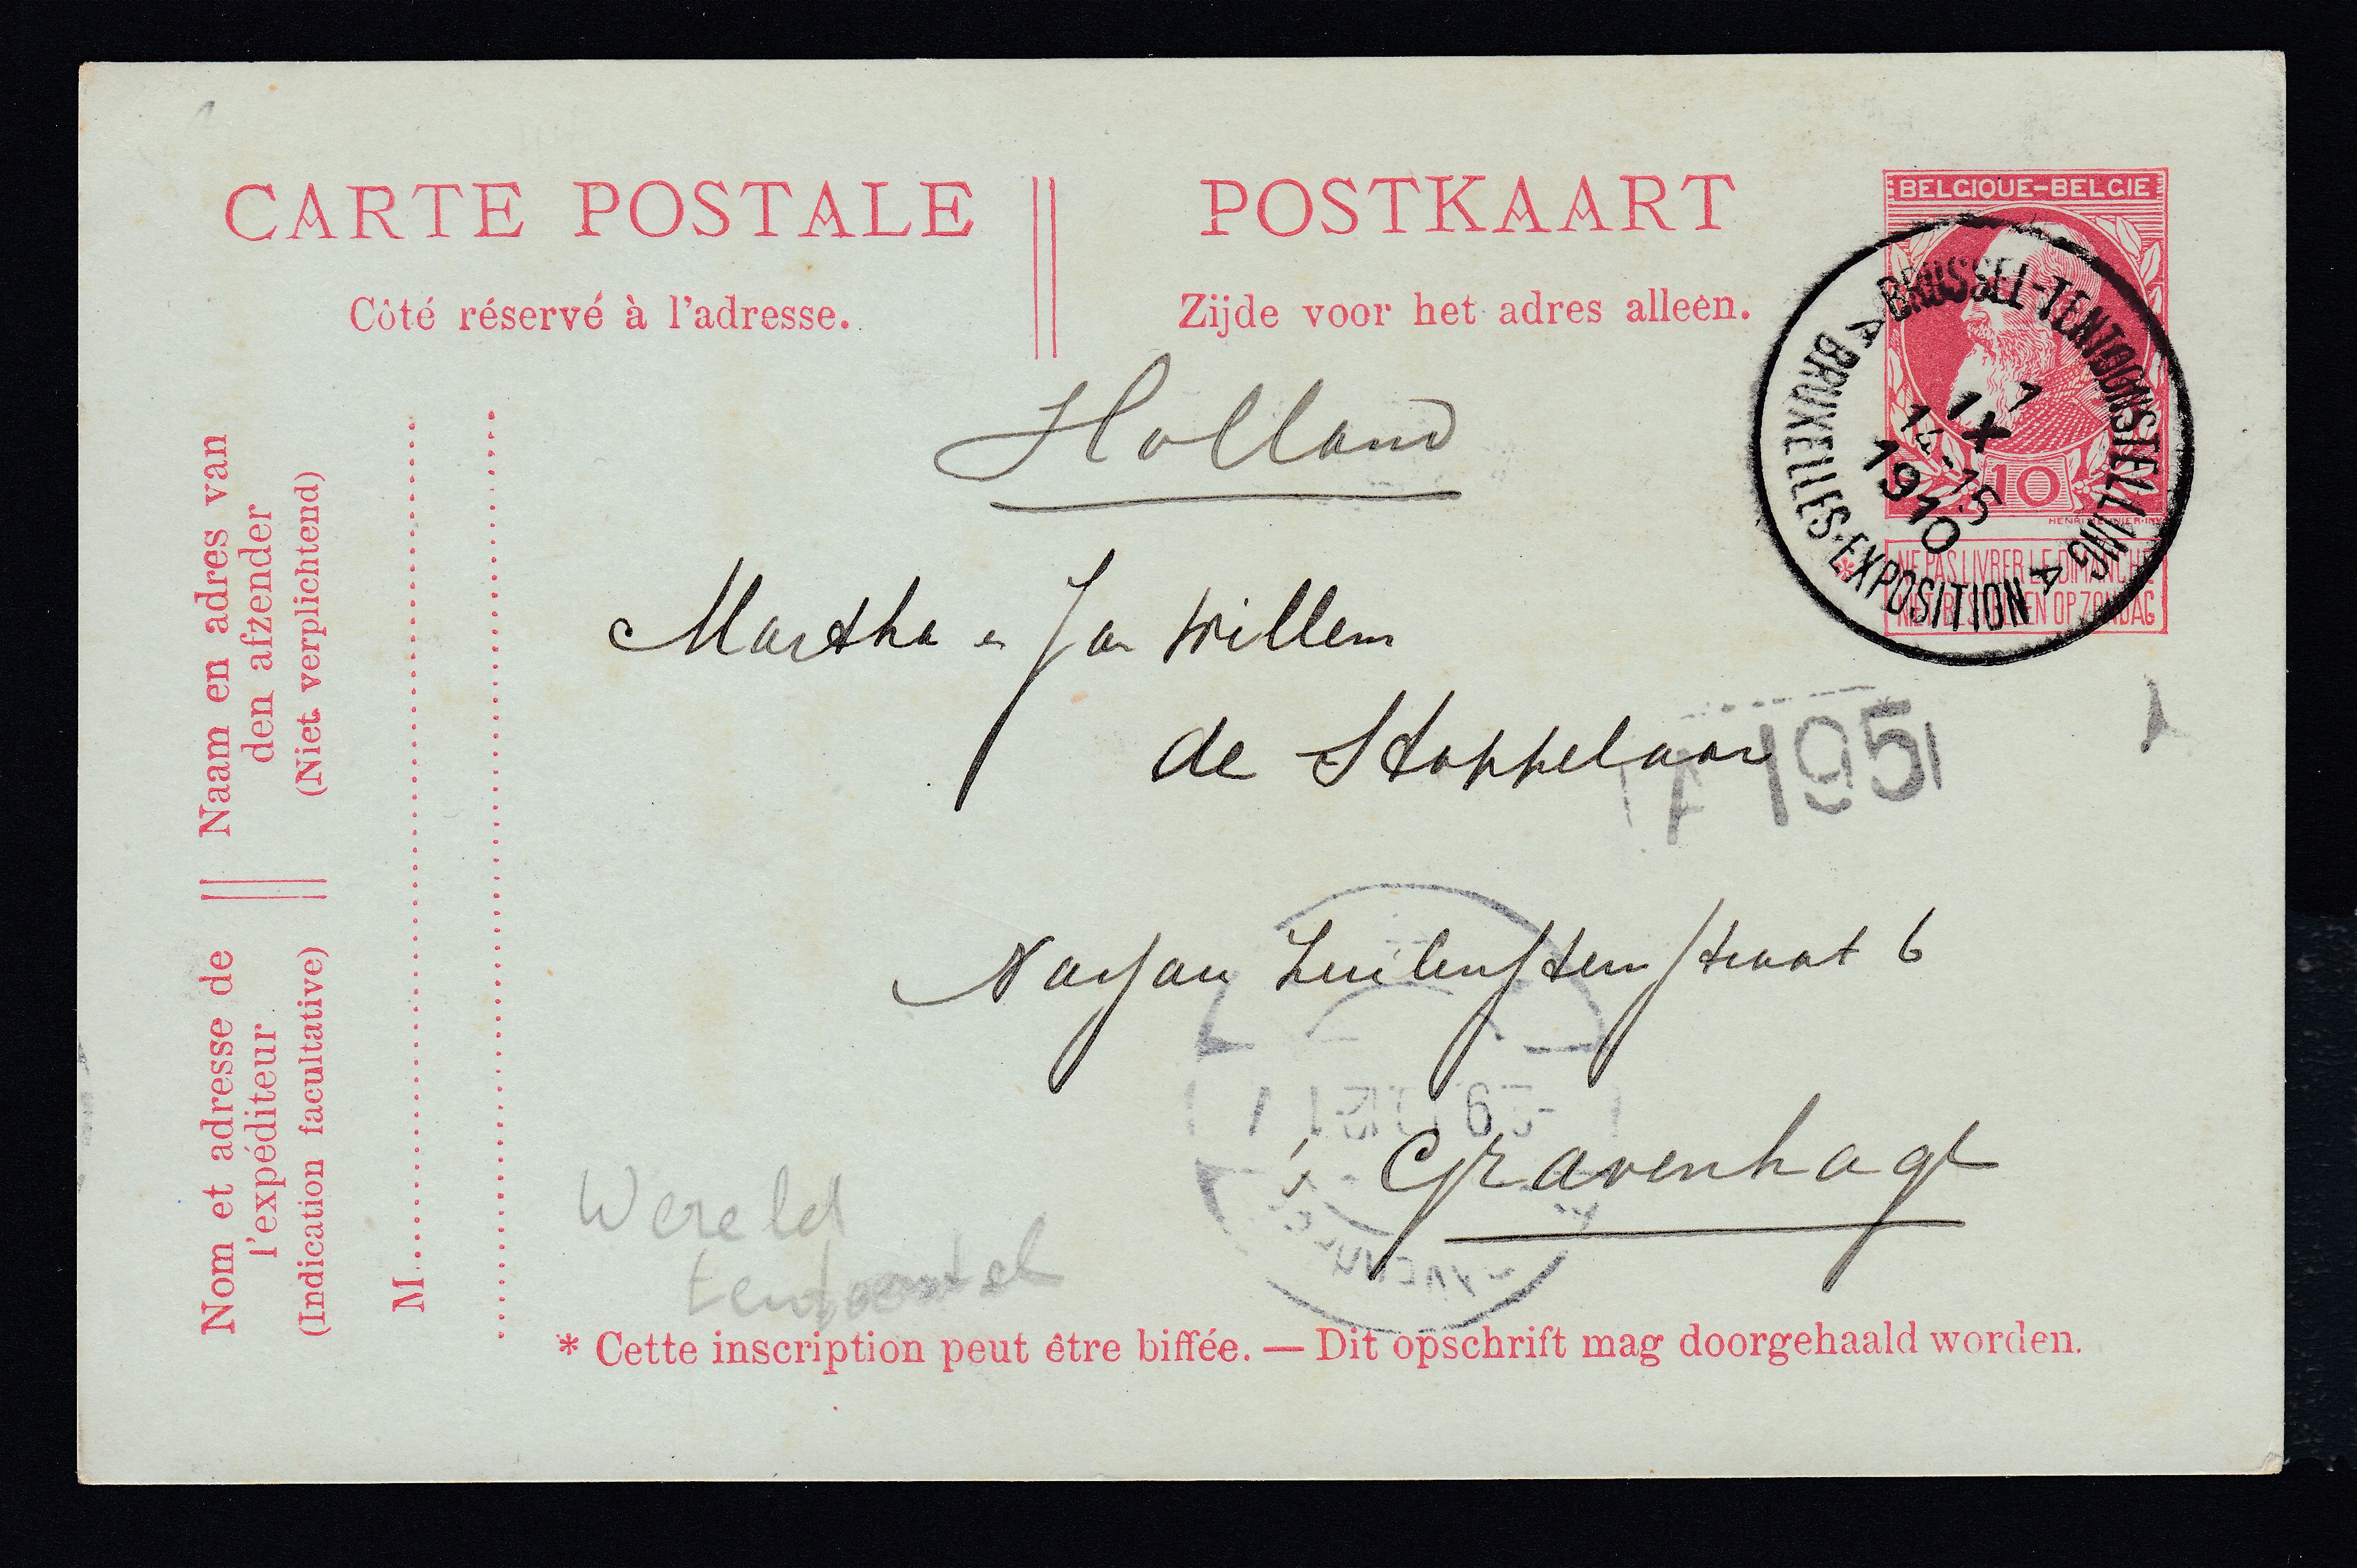 CARTE POSTALE
POSTKAART
Côté réservé à l'adresse.
Zijde voor het adres alleen.
BELGIQUE-BELGIE
10
HENRI MEUNIER·INV
NE PAS LIVRER LE DIMANCHE
NIET BESTELLEN OP ZONDAG
A BRUSSEL-TENTOONSTELLING A
BRUXELLES-EXPOSITION
1
IX
14-15
1910
Holland
Martha en Jan Willem
de Stoppelaar
195
Nassau Zuilensteinstraat 6
's Gravenhage
Wereld
tentoonstel
Naam en adres van
den afzender
(Niet verplichtend)
Nom et adresse de
l'expéditeur
(Indication facultative)
M
*
* Cette inscription peut être biffée. — Dit opschrift mag doorgehaald worden.